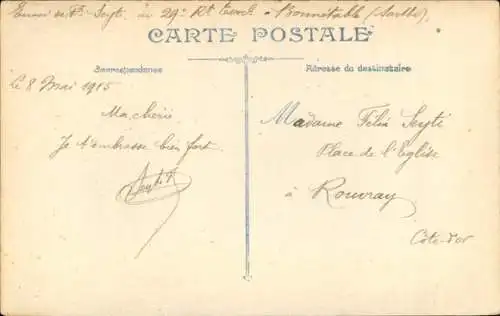 Envoi de F. Seyti, au 29e Rt Territ. à Bonnétable (Sarthe).
CARTE POSTALE
Correspondance
Adresse du destinataire
Le 8 Mai 1915
Ma chérie
Je t'embrasse bien fort
Seyti F.
Madame Félix Seyti
Place de l'Eglise
à Rouvray
Côte-d'or